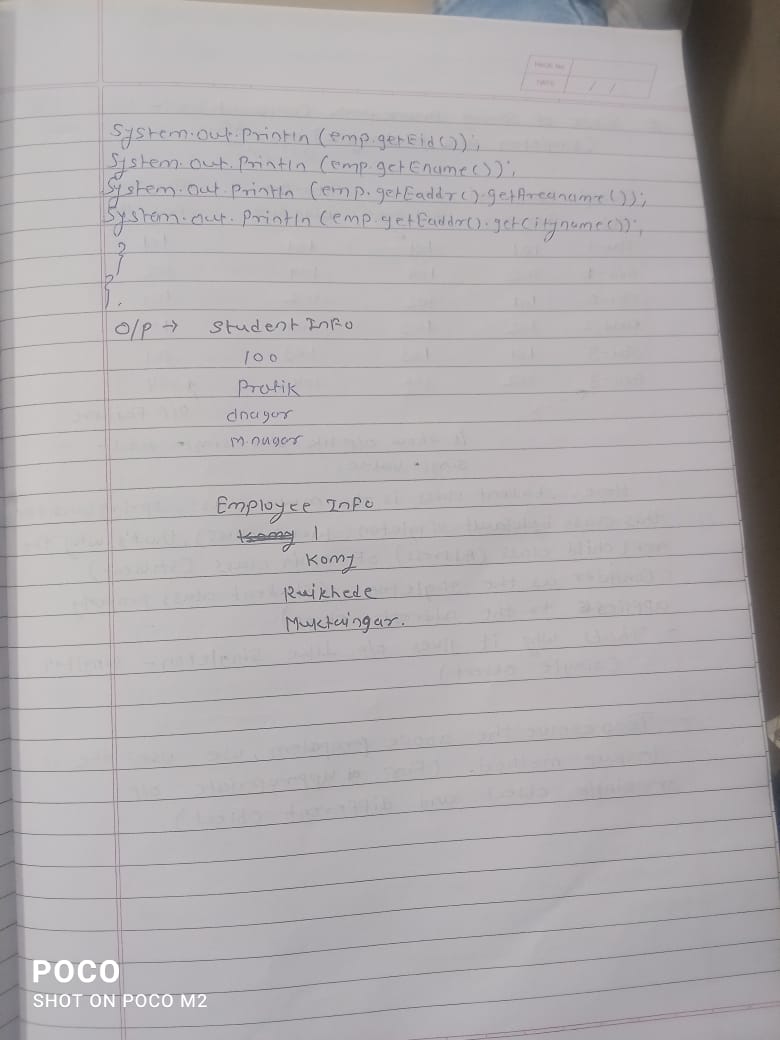 PAGE NO.
DATE / /
System.out.println (emp.getEid());
System.out.println (emp.getEname());
System.out.println (emp.getEaddr().getAreaname());
System.out.println (emp.getEaddr().getCityname());
}
}.
O/P → Student Info
100
Pratik
dnagar
m.nagar
Employee Info
1
Komy
Ruikhede
Muktaingar.
POCO
SHOT ON POCO M2